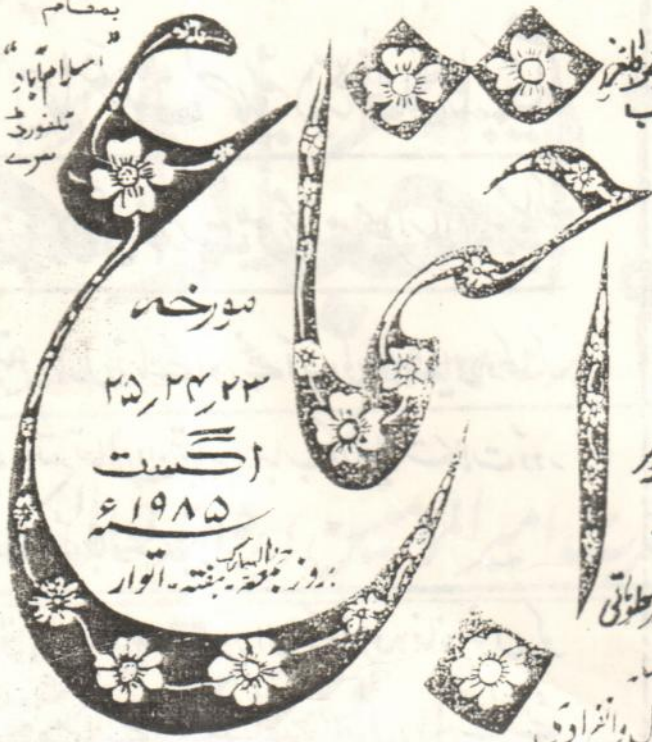 بمقام
"اسلام آباد"
ٹلفورڈ
سرے
اجتماع
مورخہ
۲۳، ۲۴، ۲۵
اگست
۱۹۸۵ء
بروز جمعۃ المبارک۔ ہفتہ۔ اتوار
وانفرادی